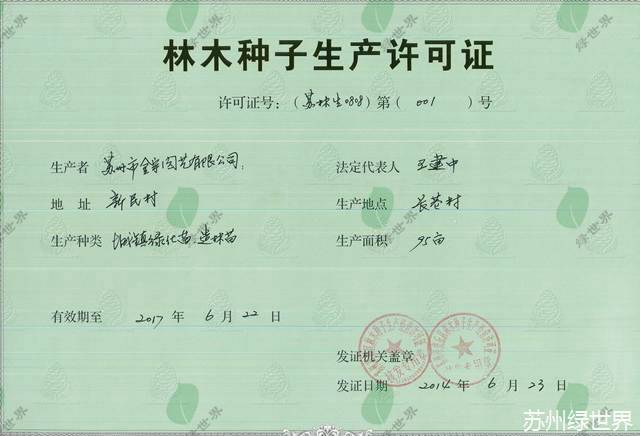 林木种子生产许可证
许可证号：（苏林生0808）第（ 001 ）号
生产者 苏州市金 园艺有限公司
法定代表人 王建中
地 址 新民村
生产地点 长巷村
生产种类 城镇绿化苗、造林苗
生产面积 95亩
有效期至 2017 年 6 月 22 日
发证机关盖章
发证日期 2014 年 6 月 23 日
绿世界
苏州绿世界